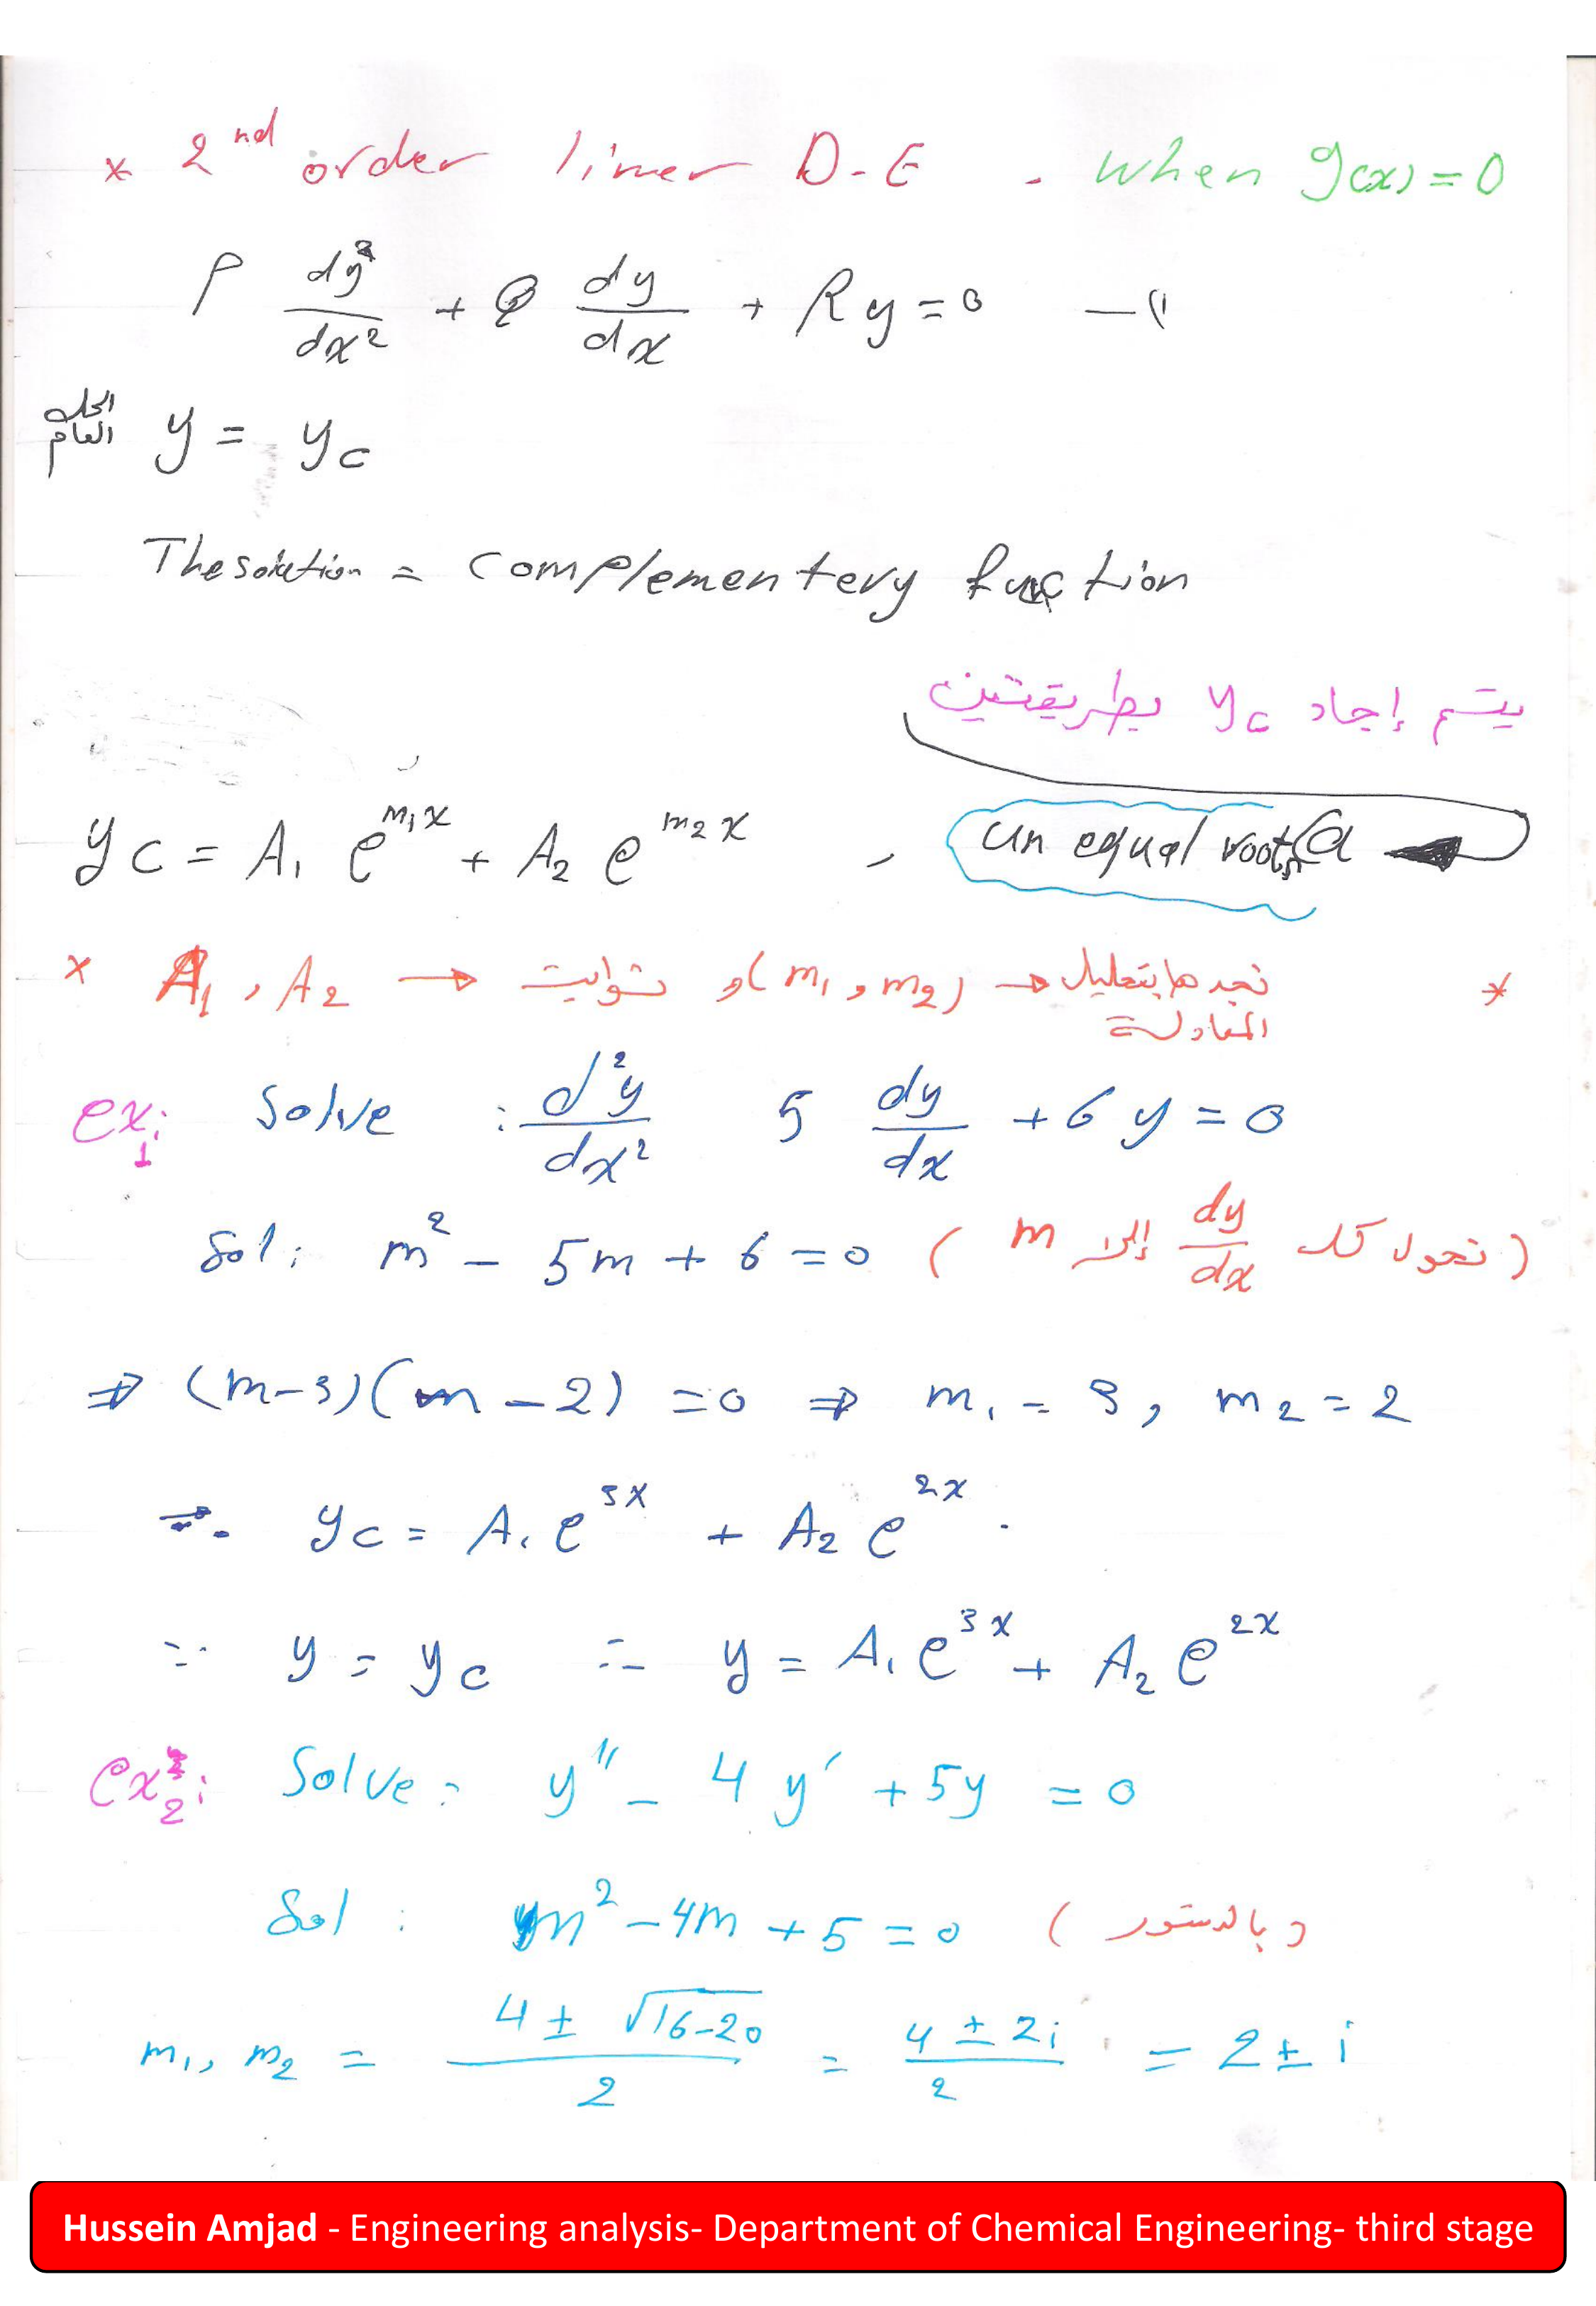 * 2nd order liner D-E . when g(x) = 0
P dy²/dx² + Q dy/dx + Ry = 0 —(1
الحل العام y = yc
The solution = complementery function
يتم إيجاد yc بطريقتين
yc = A₁ e^m₁x + A₂ e^m₂x , un equal roots @
* A₁ , A₂ → ثوابت و (m₁ , m₂) → نجدها بتحليل المعادلة *
ex: 1 Solve : d²y/dx² 5 dy/dx + 6y = 0
Sol: m² - 5m + 6 = 0 (نحول كل dy/dx إلى m)
⇒ (m-3)(m-2) = 0 ⇒ m₁ = 3, m₂ = 2
⇒ yc = A₁ e^3x + A₂ e^2x .
∵ y = yc ∴ y = A₁ e^3x + A₂ e^2x
ex 2: Solve: y'' - 4y' + 5y = 0
Sol : m² - 4m + 5 = 0 (بالدستور)
m₁, m₂ = 4 ± √16-20 / 2 = 4 ± 2i / 2 = 2 ± i
Hussein Amjad - Engineering analysis- Department of Chemical Engineering- third stage